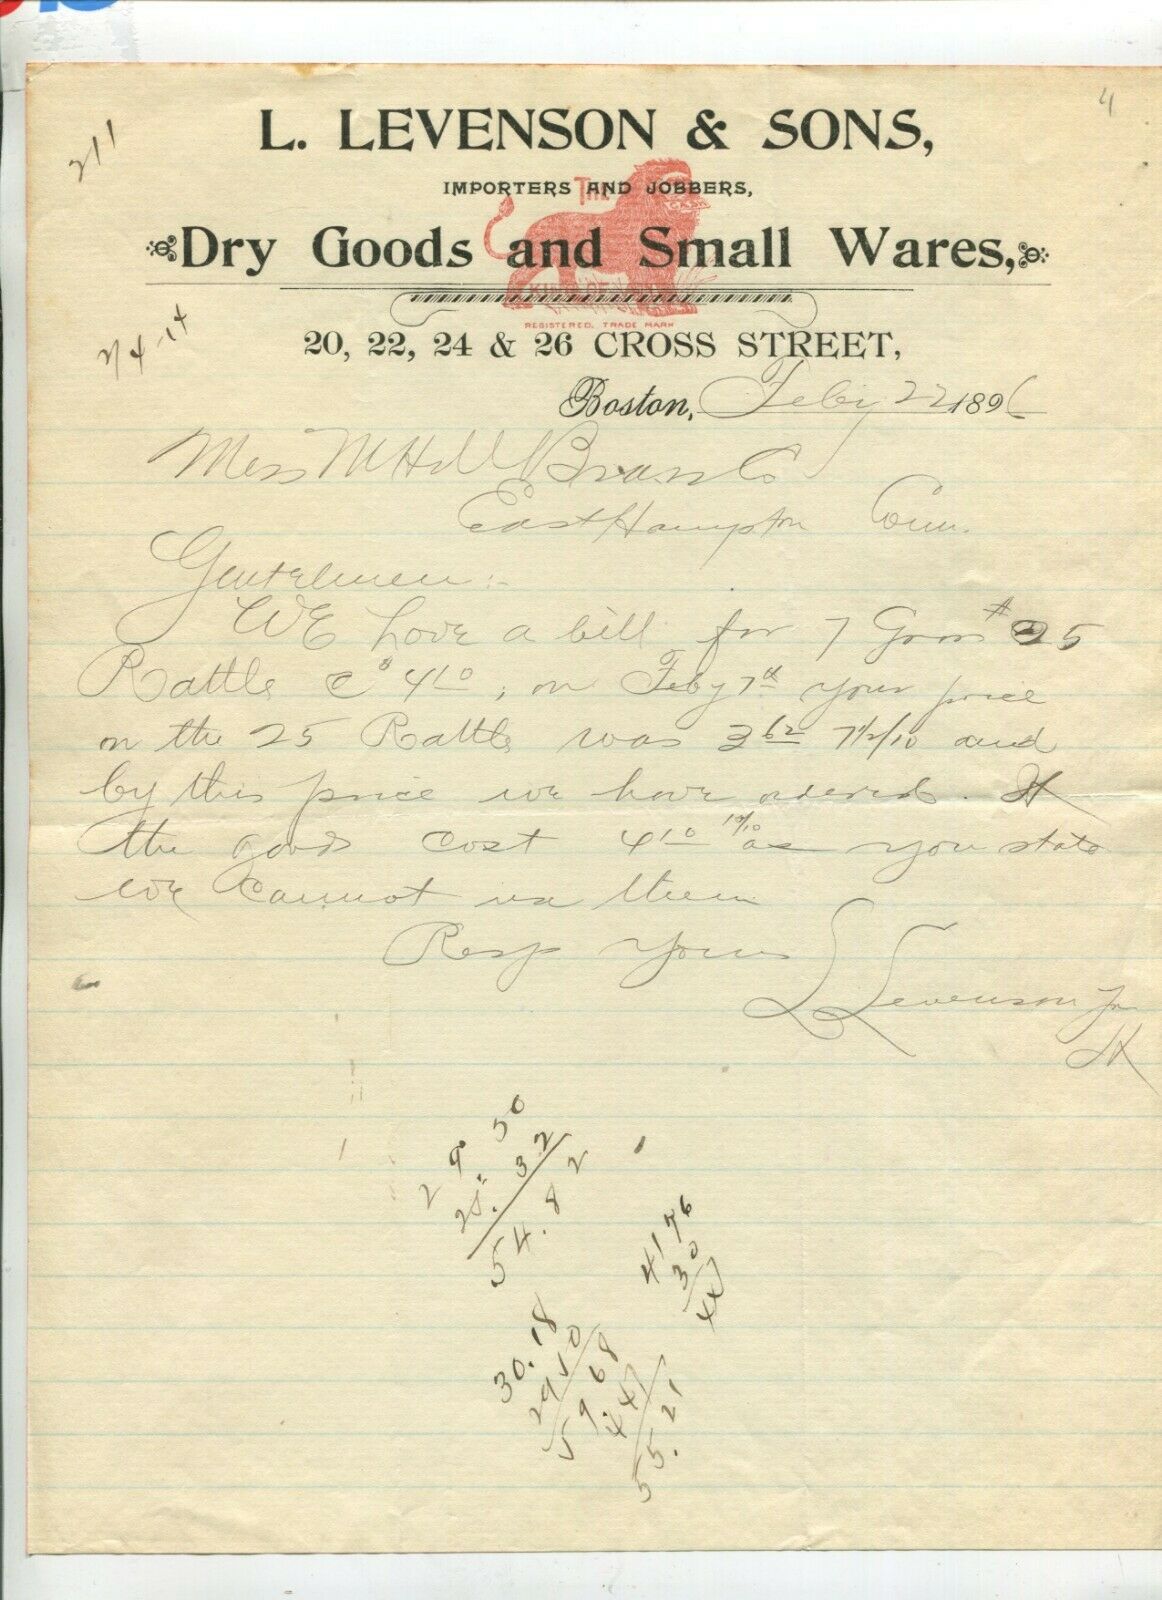 4
211
L. LEVENSON & SONS,
IMPORTERS AND JOBBERS,
THE
Dry Goods and Small Wares,
KING OF
REGISTERED. TRADE MARK
20, 22, 24 & 26 CROSS STREET,
2/4-14
Boston, Feby 22 1896
Mess N N Hill Brass Co
East Hampton Conn.
Gentelmen:-
We have a bill for 7 Gross # 25
Rattle @ $4 10, on Feby 7th your price
on the 25 Rattle was 3 62 7 1/2/10 and
by this price we have ordered. If
the goods cost 4 10 10/10 as you state
we cannot use them
Resp Yours
L Levenson
29 50
25. 32
54.82
4176
30
447
30.18
29 50
59.68
4.47
55.21